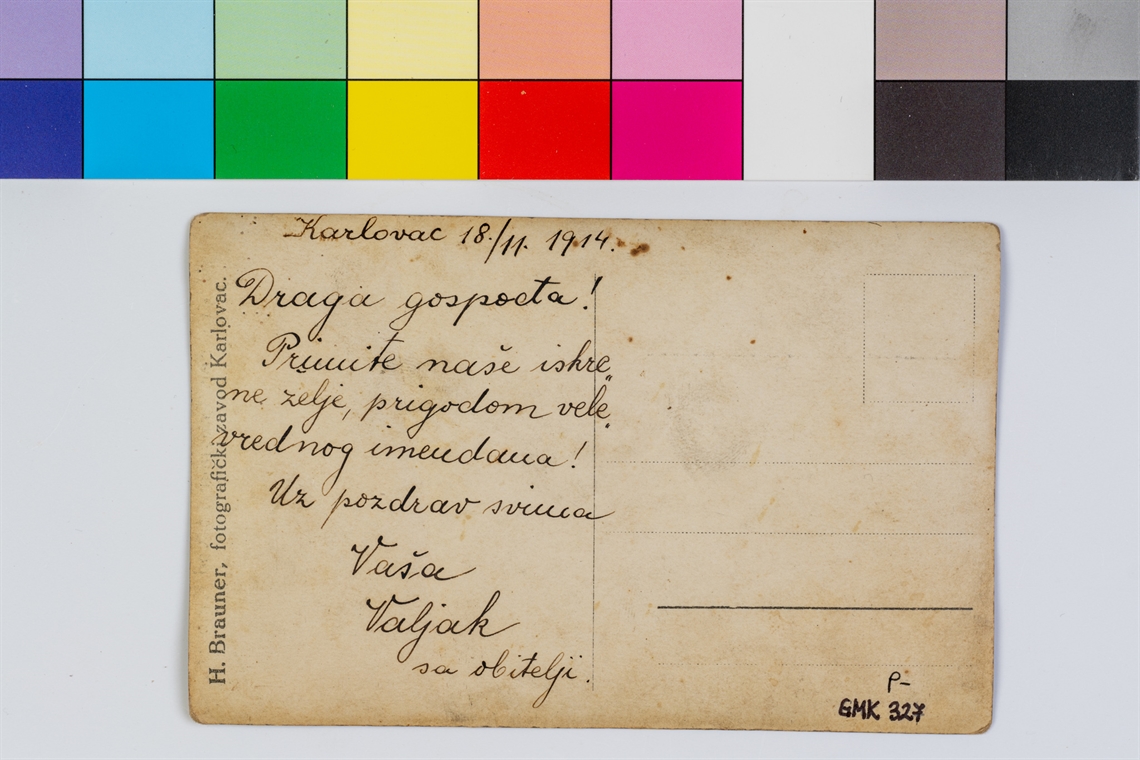 Karlovac 18./11. 1914.
Draga gospođa!
Primite naše iskre„
ne zelje, prigodom vele„
vrednog imendana!
Uz pozdrav svima
Vaša
Valjak
sa obitelji.
H. Brauner, fotografički zavod Karlovac.
P-
GMK 327